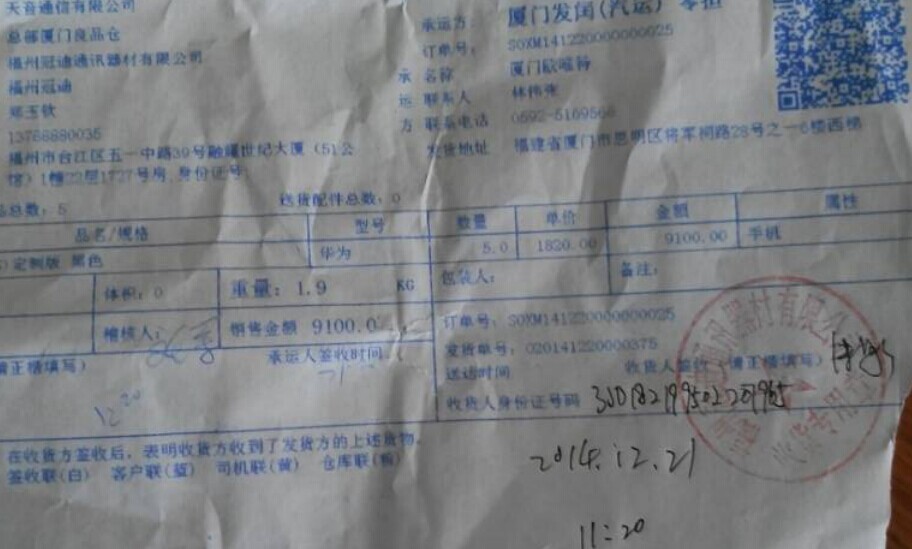 天音通信有限公司
总部厦门良品仓
福州冠迪通讯器材有限公司
福州冠迪
郑玉钦
13788880035
福州市台江区五一中路39号融耀世纪大厦(51公
馆)1幢22层1727号房,身份证号:
承运方: 厦门发闵(汽运) 零担
订单号: SOXM141220000000025
承 名称
运 联系人 林伟强
方 联系电话 0592-5169566
发货地址 福建省厦门市思明区将军祠路28号之一6楼西梯
品总数: 5 送货配件总数: 0
品名/规格 型号 数量 单价 金额 属性
定制版 黑色 华为 5.0 1820.00 9100.00 手机
体积: 0 重量: 1.9 KG 包装人: 备注:
稽核人: 销售金额 9100.0
订单号: SOXM141220000000025
请正楷填写) 承运人签收时间
发货单号: 020141220000375
送达时间 收货人签收(请正楷填写)
收货人身份证号码
在收货方签收后,表明收货方收到了发货方的上述货物。
签收联(白) 客户联(蓝) 司机联(黄) 仓库联(
2014.12.21
11:20